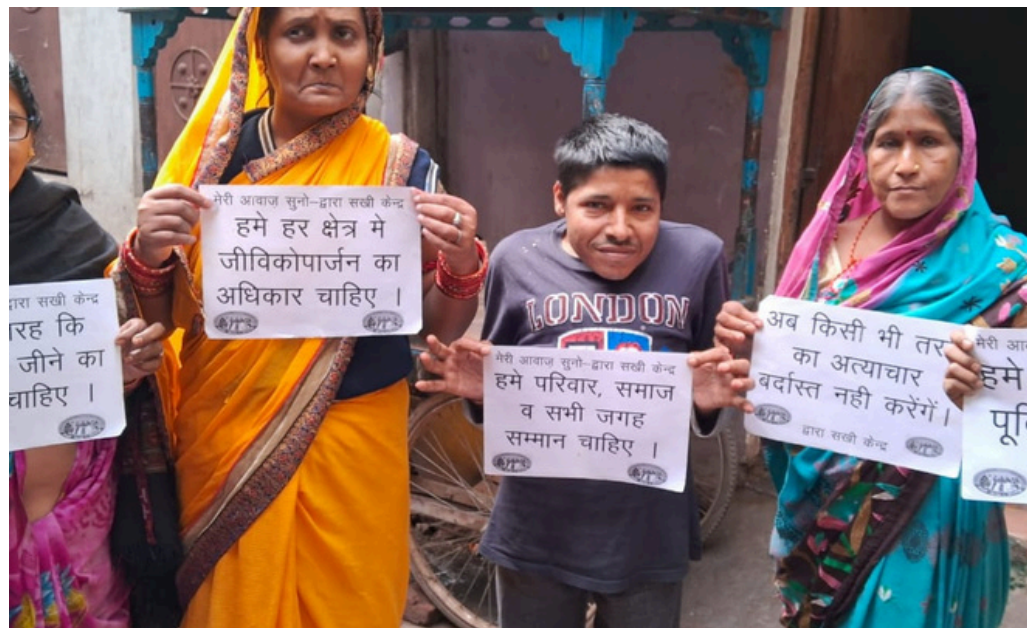 द्वारा सखी केन्द्र
रह कि
जीने का
चाहिए ।
मेरी आवाज़ सुनो–द्वारा सखी केन्द्र
हमे हर क्षेत्र मे
जीविकोपार्जन का
अधिकार चाहिए ।
LONDON
मेरी आवाज़ सुनो–द्वारा सखी केन्द्र
हमे परिवार, समाज
व सभी जगह
सम्मान चाहिए ।
अब किसी भी तर
का अत्याचार
बर्दास्त नही करेंगें।
द्वारा सखी केन्द्र
मेरी आव
हमे
पूर्ि